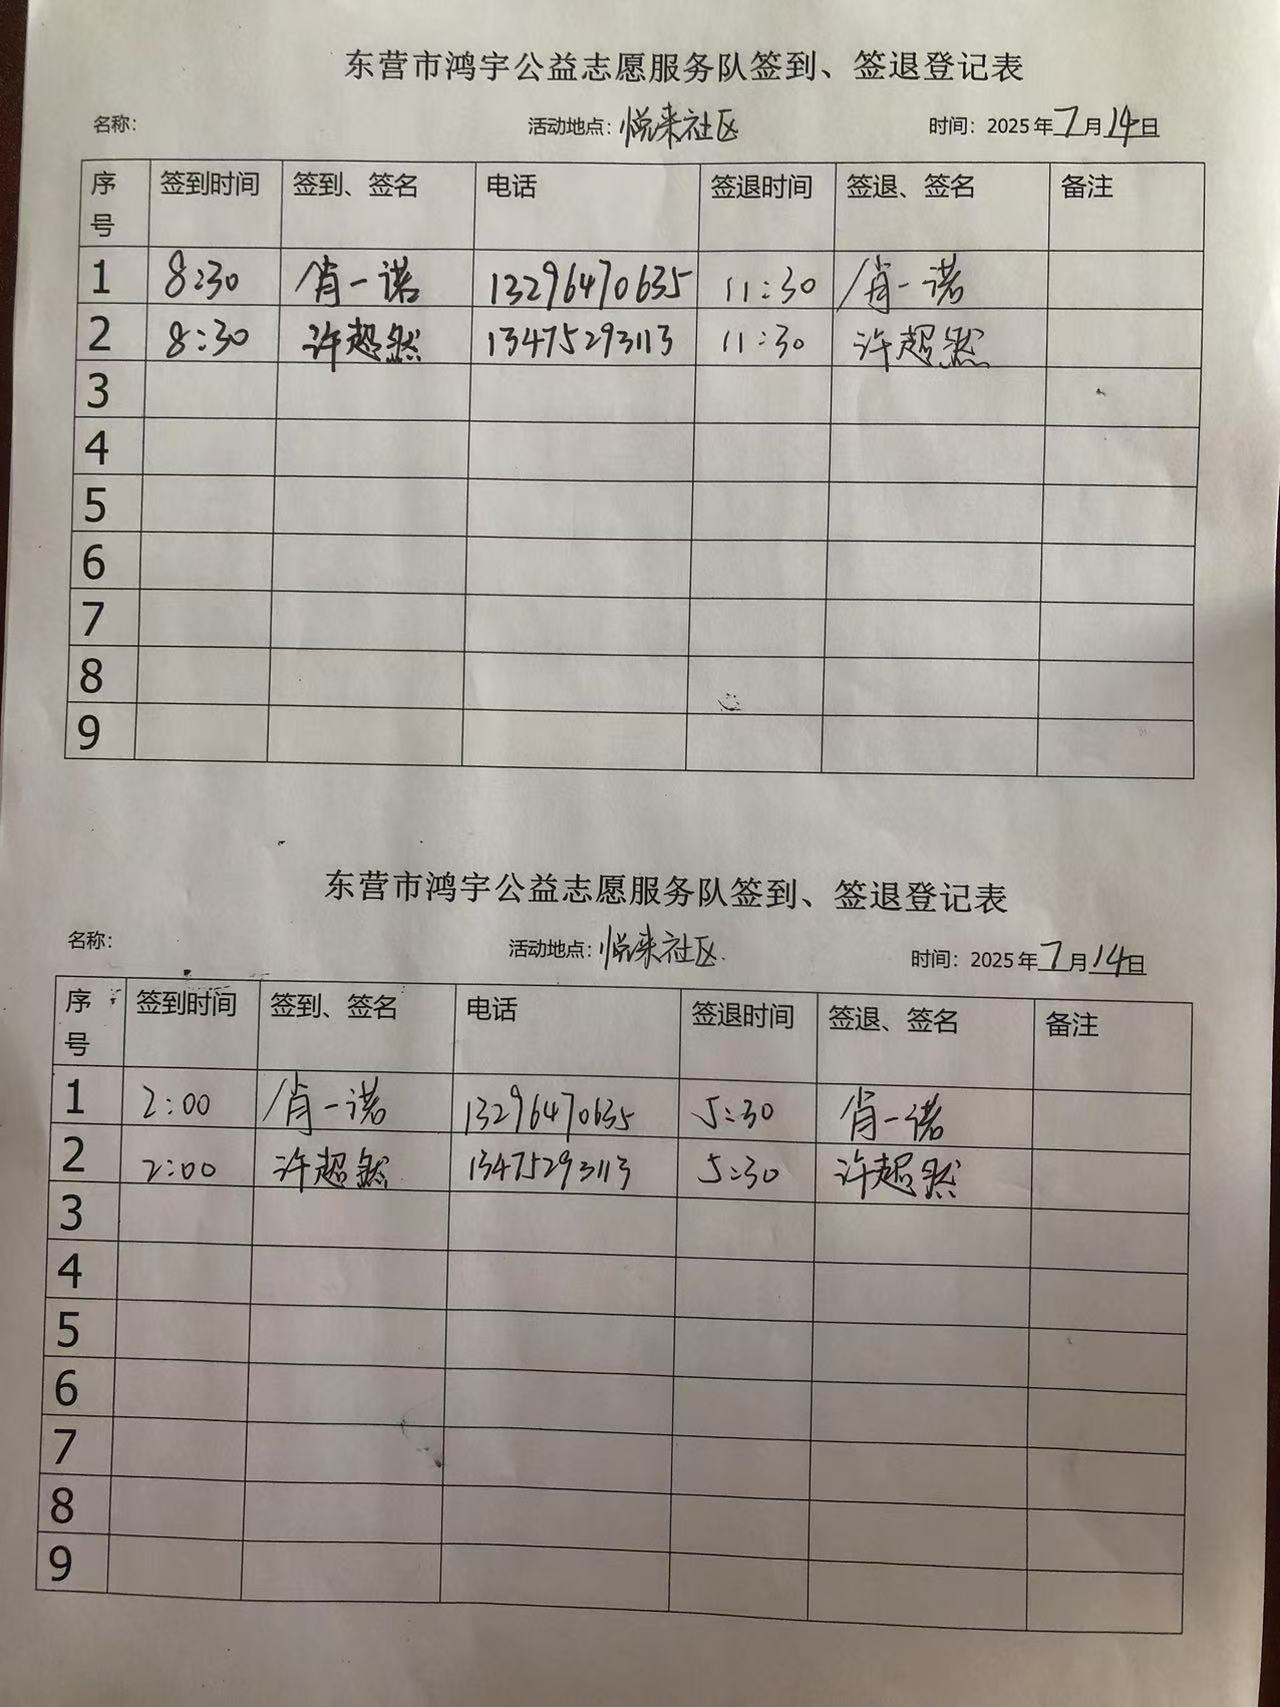 东营市鸿宇公益志愿服务队签到、签退登记表
名称: 活动地点: 悦来社区 时间: 2025年7月14日
序号 签到时间 签到、签名 电话 签退时间 签退、签名 备注
1 8:30 肖一诺 13296470635 11:30 肖一诺
2 8:30 许超然 13475293113 11:30 许超然
3
4
5
6
7
8
9
东营市鸿宇公益志愿服务队签到、签退登记表
名称: 活动地点: 悦来社区. 时间: 2025年7月14日
序号 签到时间 签到、签名 电话 签退时间 签退、签名 备注
1 2:00 肖一诺 13296470635 5:30 肖一诺
2 2:00 许超然 13475293113 5:30 许超然
3
4
5
6
7
8
9